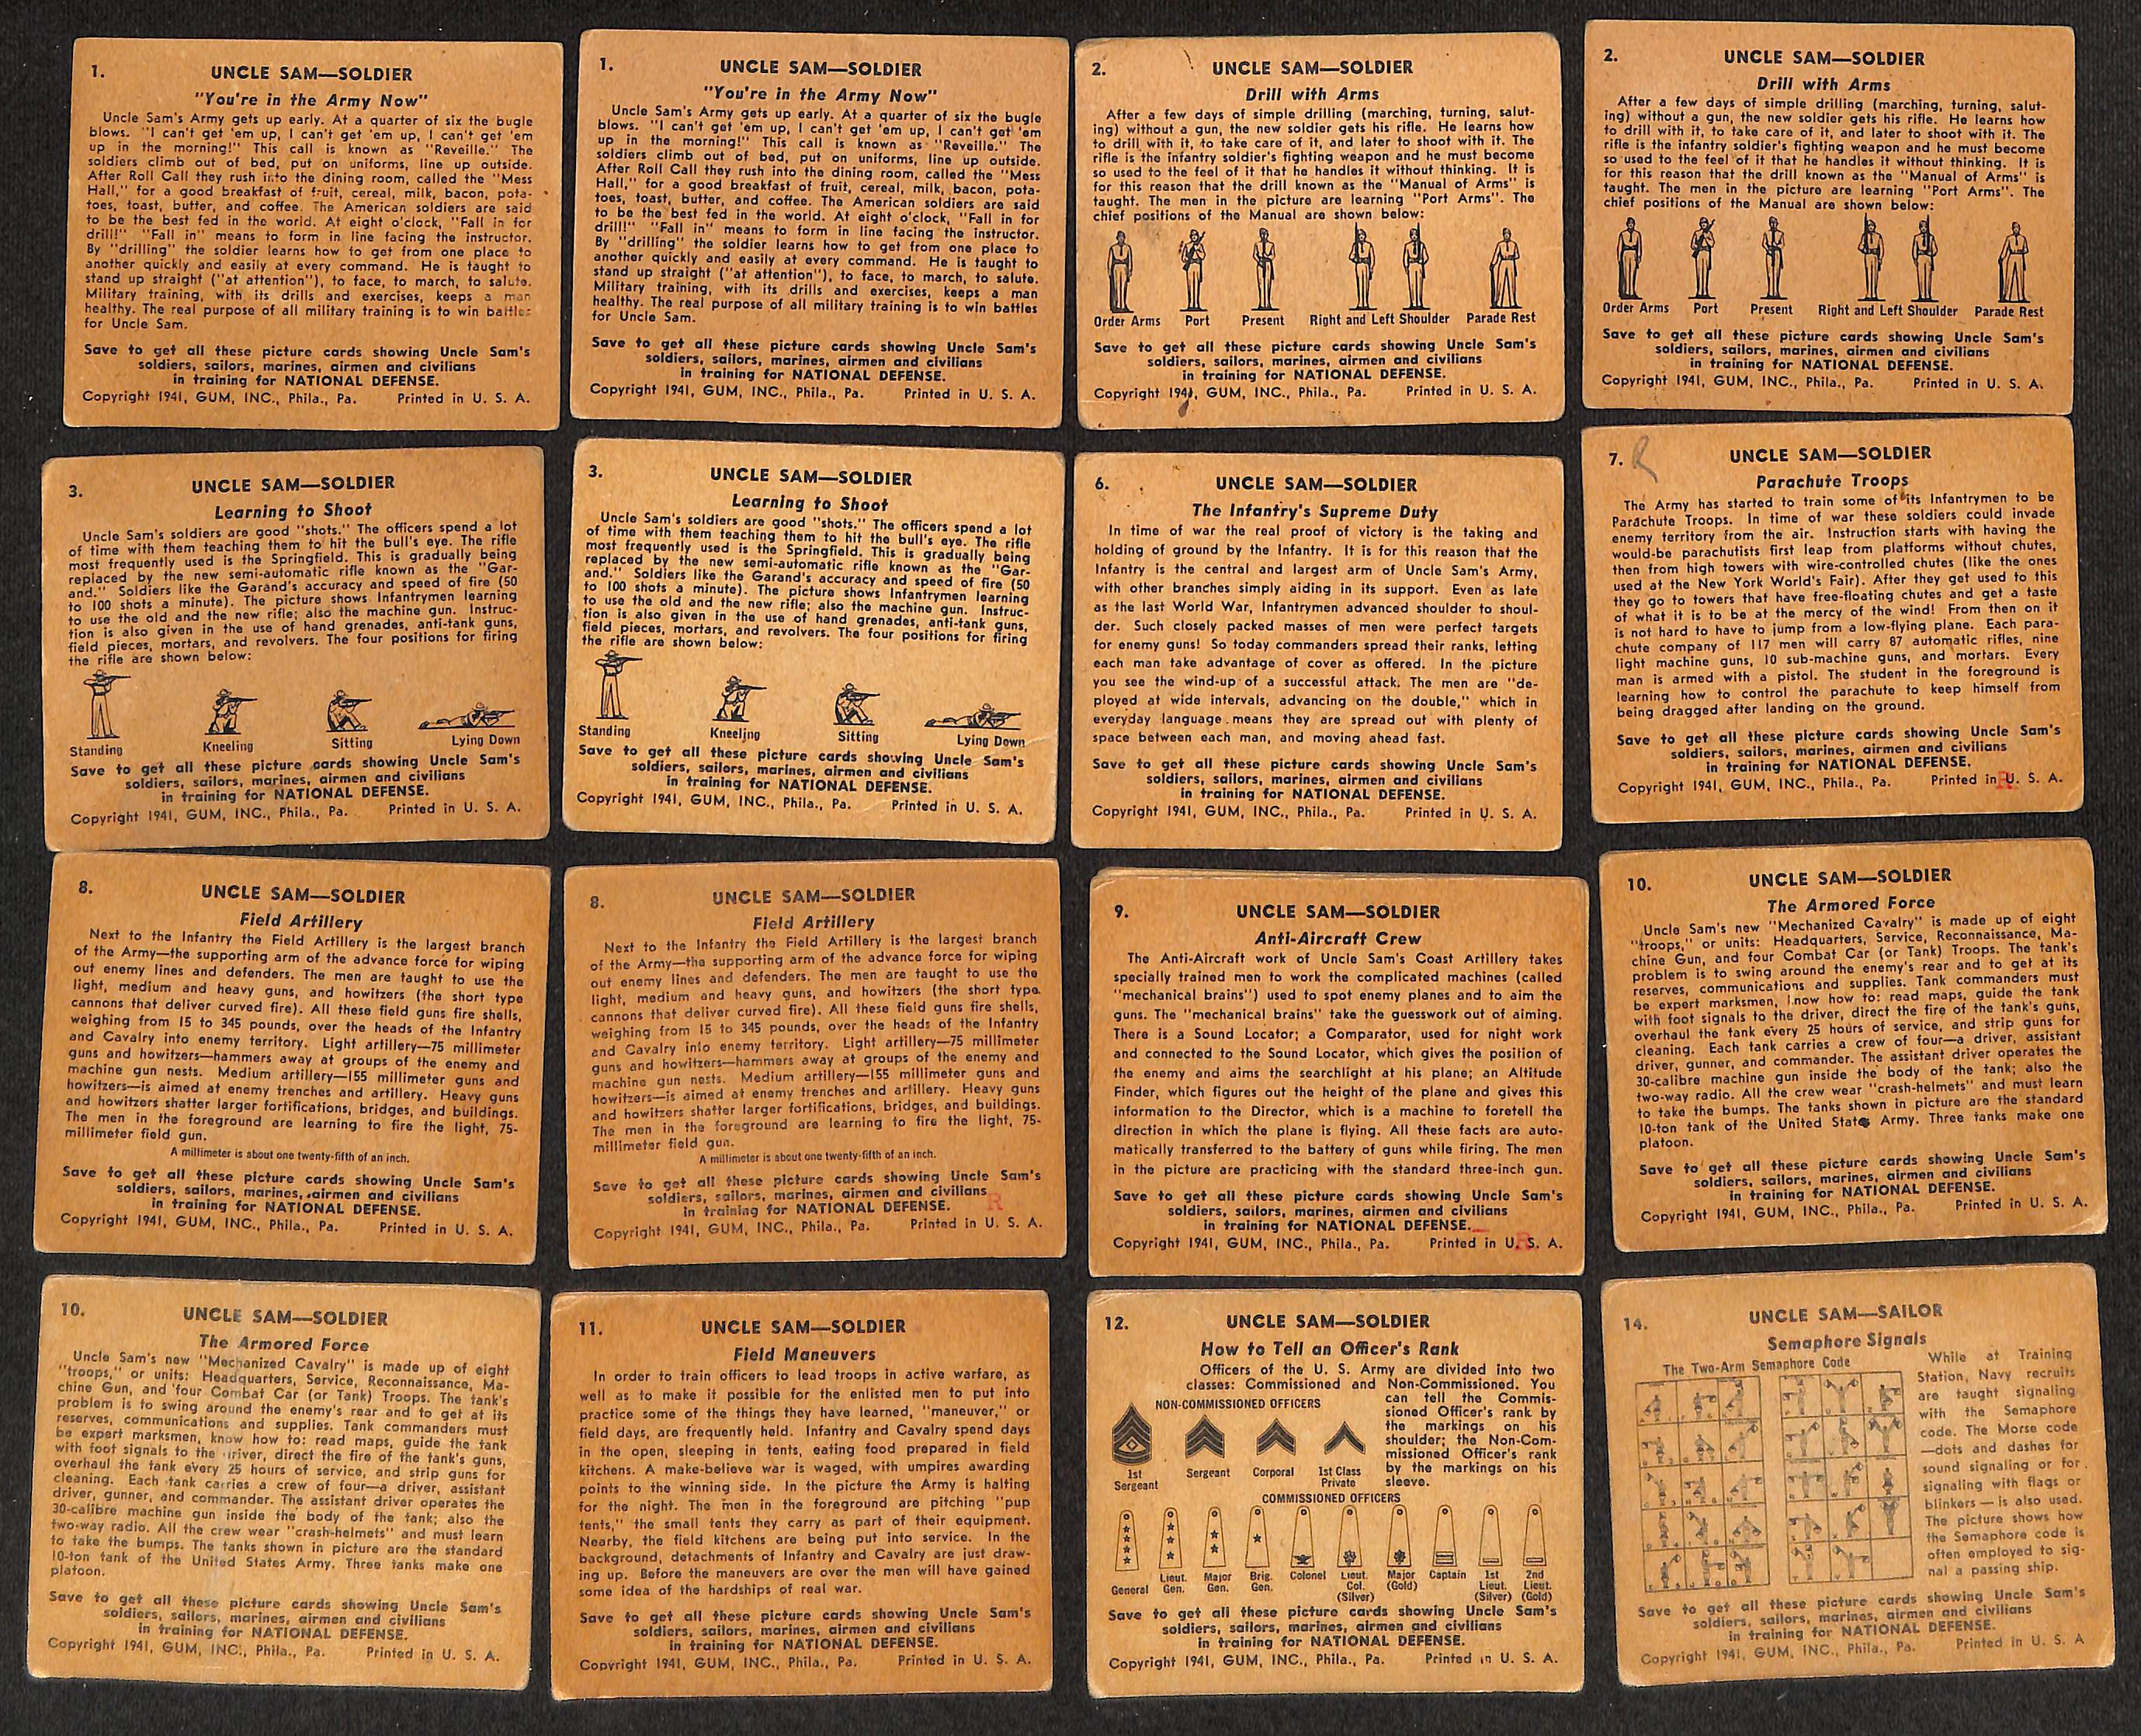 1.
UNCLE SAM—SOLDIER
"You're in the Army Now"
Uncle Sam's Army gets up early. At a quarter of six the bugle
blows. "I can't get 'em up, I can't get 'em up, I can't get 'em
up in the morning!" This call is known as "Reveille." The
soldiers climb out of bed, put on uniforms, line up outside.
After Roll Call they rush into the dining room, called the "Mess
Hall," for a good breakfast of fruit, cereal, milk, bacon, pota-
toes, toast, butter, and coffee. The American soldiers are said
to be the best fed in the world. At eight o'clock, "Fall in for
drill!" "Fall in" means to form in line facing the instructor.
By "drilling" the soldier learns how to get from one place to
another quickly and easily at every command. He is taught to
stand up straight ("at attention"), to face, to march, to salute.
Military training, with its drills and exercises, keeps a man
healthy. The real purpose of all military training is to win battles
for Uncle Sam.
Save to get all these picture cards showing Uncle Sam's
soldiers, sailors, marines, airmen and civilians
in training for NATIONAL DEFENSE.
Copyright 1941, GUM, INC., Phila., Pa. Printed in U. S. A.
1.
UNCLE SAM—SOLDIER
"You're in the Army Now"
Uncle Sam's Army gets up early. At a quarter of six the bugle
blows. "I can't get 'em up, I can't get 'em up, I can't get 'em
up in the morning!" This call is known as "Reveille." The
soldiers climb out of bed, put on uniforms, line up outside.
After Roll Call they rush into the dining room, called the "Mess
Hall," for a good breakfast of fruit, cereal, milk, bacon, pota-
toes, toast, butter, and coffee. The American soldiers are said
to be the best fed in the world. At eight o'clock, "Fall in for
drill!" "Fall in" means to form in line facing the instructor.
By "drilling" the soldier learns how to get from one place to
another quickly and easily at every command. He is taught to
stand up straight ("at attention"), to face, to march, to salute.
Military training, with its drills and exercises, keeps a man
healthy. The real purpose of all military training is to win battles
for Uncle Sam.
Save to get all these picture cards showing Uncle Sam's
soldiers, sailors, marines, airmen and civilians
in training for NATIONAL DEFENSE.
Copyright 1941, GUM, INC., Phila., Pa. Printed in U. S. A.
2.
UNCLE SAM—SOLDIER
Drill with Arms
After a few days of simple drilling (marching, turning, salut-
ing) without a gun, the new soldier gets his rifle. He learns how
to drill with it, to take care of it, and later to shoot with it. The
rifle is the infantry soldier's fighting weapon and he must become
so used to the feel of it that he handles it without thinking. It is
for this reason that the drill known as the "Manual of Arms" is
taught. The men in the picture are learning "Port Arms". The
chief positions of the Manual are shown below:
Order Arms Port Present Right and Left Shoulder Parade Rest
Save to get all these picture cards showing Uncle Sam's
soldiers, sailors, marines, airmen and civilians
in training for NATIONAL DEFENSE.
Copyright 1941, GUM, INC., Phila., Pa. Printed in U. S. A.
2.
UNCLE SAM—SOLDIER
Drill with Arms
After a few days of simple drilling (marching, turning, salut-
ing) without a gun, the new soldier gets his rifle. He learns how
to drill with it, to take care of it, and later to shoot with it. The
rifle is the infantry soldier's fighting weapon and he must become
so used to the feel of it that he handles it without thinking. It is
for this reason that the drill known as the "Manual of Arms" is
taught. The men in the picture are learning "Port Arms". The
chief positions of the Manual are shown below:
Order Arms Port Present Right and Left Shoulder Parade Rest
Save to get all these picture cards showing Uncle Sam's
soldiers, sailors, marines, airmen and civilians
in training for NATIONAL DEFENSE.
Copyright 1941, GUM, INC., Phila., Pa. Printed in U. S. A.
3.
UNCLE SAM—SOLDIER
Learning to Shoot
Uncle Sam's soldiers are good "shots." The officers spend a lot
of time with them teaching them to hit the bull's eye. The rifle
most frequently used is the Springfield. This is gradually being
replaced by the new semi-automatic rifle known as the "Gar-
and." Soldiers like the Garand's accuracy and speed of fire (50
to 100 shots a minute). The picture shows Infantrymen learning
to use the old and the new rifle; also the machine gun. Instruc-
tion is also given in the use of hand grenades, anti-tank guns,
field pieces, mortars, and revolvers. The four positions for firing
the rifle are shown below:
Standing Kneeling Sitting Lying Down
Save to get all these picture cards showing Uncle Sam's
soldiers, sailors, marines, airmen and civilians
in training for NATIONAL DEFENSE.
Copyright 1941, GUM, INC., Phila., Pa. Printed in U. S. A.
3.
UNCLE SAM—SOLDIER
Learning to Shoot
Uncle Sam's soldiers are good "shots." The officers spend a lot
of time with them teaching them to hit the bull's eye. The rifle
most frequently used is the Springfield. This is gradually being
replaced by the new semi-automatic rifle known as the "Gar-
and." Soldiers like the Garand's accuracy and speed of fire (50
to 100 shots a minute). The picture shows Infantrymen learning
to use the old and the new rifle; also the machine gun. Instruc-
tion is also given in the use of hand grenades, anti-tank guns,
field pieces, mortars, and revolvers. The four positions for firing
the rifle are shown below:
Standing Kneeling Sitting Lying Down
Save to get all these picture cards showing Uncle Sam's
soldiers, sailors, marines, airmen and civilians
in training for NATIONAL DEFENSE.
Copyright 1941, GUM, INC., Phila., Pa. Printed in U. S. A.
6.
UNCLE SAM—SOLDIER
The Infantry's Supreme Duty
In time of war the real proof of victory is the taking and
holding of ground by the Infantry. It is for this reason that the
Infantry is the central and largest arm of Uncle Sam's Army,
with other branches simply aiding in its support. Even as late
as the last World War, Infantrymen advanced shoulder to shoul-
der. Such closely packed masses of men were perfect targets
for enemy guns! So today commanders spread their ranks, letting
each man take advantage of cover as offered. In the picture
you see the wind-up of a successful attack. The men are "de-
ployed at wide intervals, advancing on the double," which in
everyday language means they are spread out with plenty of
space between each man, and moving ahead fast.
Save to get all these picture cards showing Uncle Sam's
soldiers, sailors, marines, airmen and civilians
in training for NATIONAL DEFENSE.
Copyright 1941, GUM, INC., Phila., Pa. Printed in U. S. A.
7. R
UNCLE SAM—SOLDIER
Parachute Troops
The Army has started to train some of its Infantrymen to be
Parachute Troops. In time of war these soldiers could invade
enemy territory from the air. Instruction starts with having the
would-be parachutists first leap from platforms without chutes,
then from high towers with wire-controlled chutes (like the ones
used at the New York World's Fair). After they get used to this
they go to towers that have free-floating chutes and get a taste
of what it is to be at the mercy of the wind! From then on it
is not hard to have to jump from a low-flying plane. Each para-
chute company of 117 men will carry 87 automatic rifles, nine
light machine guns, 10 sub-machine guns, and mortars. Every
man is armed with a pistol. The student in the foreground is
learning how to control the parachute to keep himself from
being dragged after landing on the ground.
Save to get all these picture cards showing Uncle Sam's
soldiers, sailors, marines, airmen and civilians
in training for NATIONAL DEFENSE.
Copyright 1941, GUM, INC., Phila., Pa. Printed in U. S. A.
R
8.
UNCLE SAM—SOLDIER
Field Artillery
Next to the Infantry the Field Artillery is the largest branch
of the Army—the supporting arm of the advance force for wiping
out enemy lines and defenders. The men are taught to use the
light, medium and heavy guns, and howitzers (the short type
cannons that deliver curved fire). All these field guns fire shells,
weighing from 15 to 345 pounds, over the heads of the Infantry
and Cavalry into enemy territory. Light artillery—75 millimeter
guns and howitzers—hammers away at groups of the enemy and
machine gun nests. Medium artillery—155 millimeter guns and
howitzers—is aimed at enemy trenches and artillery. Heavy guns
and howitzers shatter larger fortifications, bridges, and buildings.
The men in the foreground are learning to fire the light, 75-
millimeter field gun.
A millimeter is about one twenty-fifth of an inch.
Save to get all these picture cards showing Uncle Sam's
soldiers, sailors, marines, airmen and civilians
in training for NATIONAL DEFENSE.
Copyright 1941, GUM, INC., Phila., Pa. Printed in U. S. A.
8.
UNCLE SAM—SOLDIER
Field Artillery
Next to the Infantry the Field Artillery is the largest branch
of the Army—the supporting arm of the advance force for wiping
out enemy lines and defenders. The men are taught to use the
light, medium and heavy guns, and howitzers (the short type
cannons that deliver curved fire). All these field guns fire shells,
weighing from 15 to 345 pounds, over the heads of the Infantry
and Cavalry into enemy territory. Light artillery—75 millimeter
guns and howitzers—hammers away at groups of the enemy and
machine gun nests. Medium artillery—155 millimeter guns and
howitzers—is aimed at enemy trenches and artillery. Heavy guns
and howitzers shatter larger fortifications, bridges, and buildings.
The men in the foreground are learning to fire the light, 75-
millimeter field gun.
A millimeter is about one twenty-fifth of an inch.
Save to get all these picture cards showing Uncle Sam's
soldiers, sailors, marines, airmen and civilians
in training for NATIONAL DEFENSE. R
Copyright 1941, GUM, INC., Phila., Pa. Printed in U. S. A.
9.
UNCLE SAM—SOLDIER
Anti-Aircraft Crew
The Anti-Aircraft work of Uncle Sam's Coast Artillery takes
specially trained men to work the complicated machines (called
"mechanical brains") used to spot enemy planes and to aim the
guns. The "mechanical brains" take the guesswork out of aiming.
There is a Sound Locator; a Comparator, used for night work
and connected to the Sound Locator, which gives the position of
the enemy and aims the searchlight at his plane; an Altitude
Finder, which figures out the height of the plane and gives this
information to the Director, which is a machine to foretell the
direction in which the plane is flying. All these facts are auto-
matically transferred to the battery of guns while firing. The men
in the picture are practicing with the standard three-inch gun.
Save to get all these picture cards showing Uncle Sam's
soldiers, sailors, marines, airmen and civilians
in training for NATIONAL DEFENSE.
Copyright 1941, GUM, INC., Phila., Pa. Printed in U. S. A.
R
10.
UNCLE SAM—SOLDIER
The Armored Force
Uncle Sam's new "Mechanized Cavalry" is made up of eight
"troops," or units: Headquarters, Service, Reconnaissance, Ma-
chine Gun, and four Combat Car (or Tank) Troops. The tank's
problem is to swing around the enemy's rear and to get at its
reserves, communications and supplies. Tank commanders must
be expert marksmen, know how to: read maps, guide the tank
with foot signals to the driver, direct the fire of the tank's guns,
overhaul the tank every 25 hours of service, and strip guns for
cleaning. Each tank carries a crew of four—a driver, assistant
driver, gunner, and commander. The assistant driver operates the
30-calibre machine gun inside the body of the tank; also the
two-way radio. All the crew wear "crash-helmets" and must learn
to take the bumps. The tanks shown in picture are the standard
10-ton tank of the United States Army. Three tanks make one
platoon.
Save to get all these picture cards showing Uncle Sam's
soldiers, sailors, marines, airmen and civilians
in training for NATIONAL DEFENSE.
Copyright 1941, GUM, INC., Phila., Pa. Printed in U. S. A.
10.
UNCLE SAM—SOLDIER
The Armored Force
Uncle Sam's new "Mechanized Cavalry" is made up of eight
"troops," or units: Headquarters, Service, Reconnaissance, Ma-
chine Gun, and four Combat Car (or Tank) Troops. The tank's
problem is to swing around the enemy's rear and to get at its
reserves, communications and supplies. Tank commanders must
be expert marksmen, know how to: read maps, guide the tank
with foot signals to the driver, direct the fire of the tank's guns,
overhaul the tank every 25 hours of service, and strip guns for
cleaning. Each tank carries a crew of four—a driver, assistant
driver, gunner, and commander. The assistant driver operates the
30-calibre machine gun inside the body of the tank; also the
two-way radio. All the crew wear "crash-helmets" and must learn
to take the bumps. The tanks shown in picture are the standard
10-ton tank of the United States Army. Three tanks make one
platoon.
Save to get all these picture cards showing Uncle Sam's
soldiers, sailors, marines, airmen and civilians
in training for NATIONAL DEFENSE.
Copyright 1941, GUM, INC., Phila., Pa. Printed in U. S. A.
11.
UNCLE SAM—SOLDIER
Field Maneuvers
In order to train officers to lead troops in active warfare, as
well as to make it possible for the enlisted men to put into
practice some of the things they have learned, "maneuver," or
field days, are frequently held. Infantry and Cavalry spend days
in the open, sleeping in tents, eating food prepared in field
kitchens. A make-believe war is waged, with umpires awarding
points to the winning side. In the picture the Army is halting
for the night. The men in the foreground are pitching "pup
tents," the small tents they carry as part of their equipment.
Nearby, the field kitchens are being put into service. In the
background, detachments of Infantry and Cavalry are just draw-
ing up. Before the maneuvers are over the men will have gained
some idea of the hardships of real war.
Save to get all these picture cards showing Uncle Sam's
soldiers, sailors, marines, airmen and civilians
in training for NATIONAL DEFENSE.
Copyright 1941, GUM, INC., Phila., Pa. Printed in U. S. A.
12.
UNCLE SAM—SOLDIER
How to Tell an Officer's Rank
Officers of the U. S. Army are divided into two
classes: Commissioned and Non-Commissioned. You
can tell the Commis-
sioned Officer's rank by
the markings on his
shoulder; the Non-Com-
missioned Officer's rank
by the markings on his
sleeve.
NON-COMMISSIONED OFFICERS
1st Sergeant Sergeant Corporal 1st Class Private
COMMISSIONED OFFICERS
General Lieut. Gen. Major Gen. Brig. Gen. Colonel Lieut. Col. (Silver) Major (Gold) Captain 1st Lieut. (Silver) 2nd Lieut. (Gold)
Save to get all these picture cards showing Uncle Sam's
soldiers, sailors, marines, airmen and civilians
in training for NATIONAL DEFENSE.
Copyright 1941, GUM, INC., Phila., Pa. Printed in U. S. A.
14.
UNCLE SAM—SAILOR
Semaphore Signals
The Two-Arm Semaphore Code
While at Training
Station, Navy recruits
are taught signaling
with the Semaphore
code. The Morse code
—dots and dashes for
sound signaling or for
signaling with flags or
blinkers — is also used.
The picture shows how
the Semaphore code is
often employed to sig-
nal a passing ship.
Save to get all these picture cards showing Uncle Sam's
soldiers, sailors, marines, airmen and civilians
in training for NATIONAL DEFENSE.
Copyright 1941, GUM, INC., Phila., Pa. Printed in U. S. A